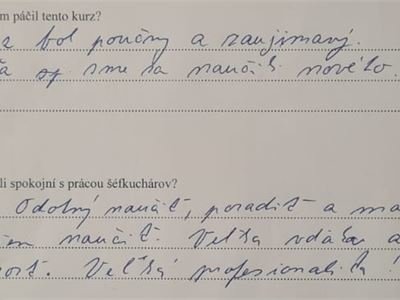 m páčil tento kurz?
z bol poučný a zaujímavý.
sp. sme sa naučili nového.
li spokojní s prácou šéfkuchárov?
Odolný naučiť, poradiť a ma
naučiť. Veľká vďaka a
Veľká profesionalita!